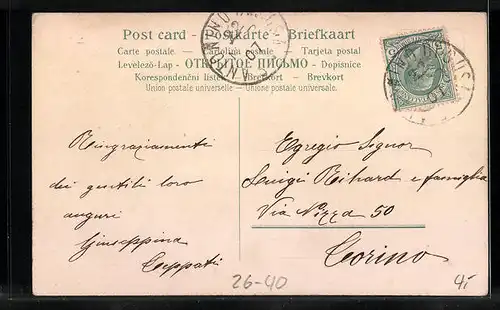 Post card - Postkarte - Briefkaart
Carte postale - Cartolina postale - Tarjeta postal
Levelező-Lap - ОТКРЫТОЕ ПИСЬМО - Dopisnice
Korespondenční listek - Brevkort - Brevkort
Union postale universelle - Unione postale universale.
Ringraziamenti
dei gentili loro
auguri
Giuseppina
Ceppati
Egregio Signor
Luigi Reihard e famiglia
Via Nizza 50
Torino
26-40
45
07